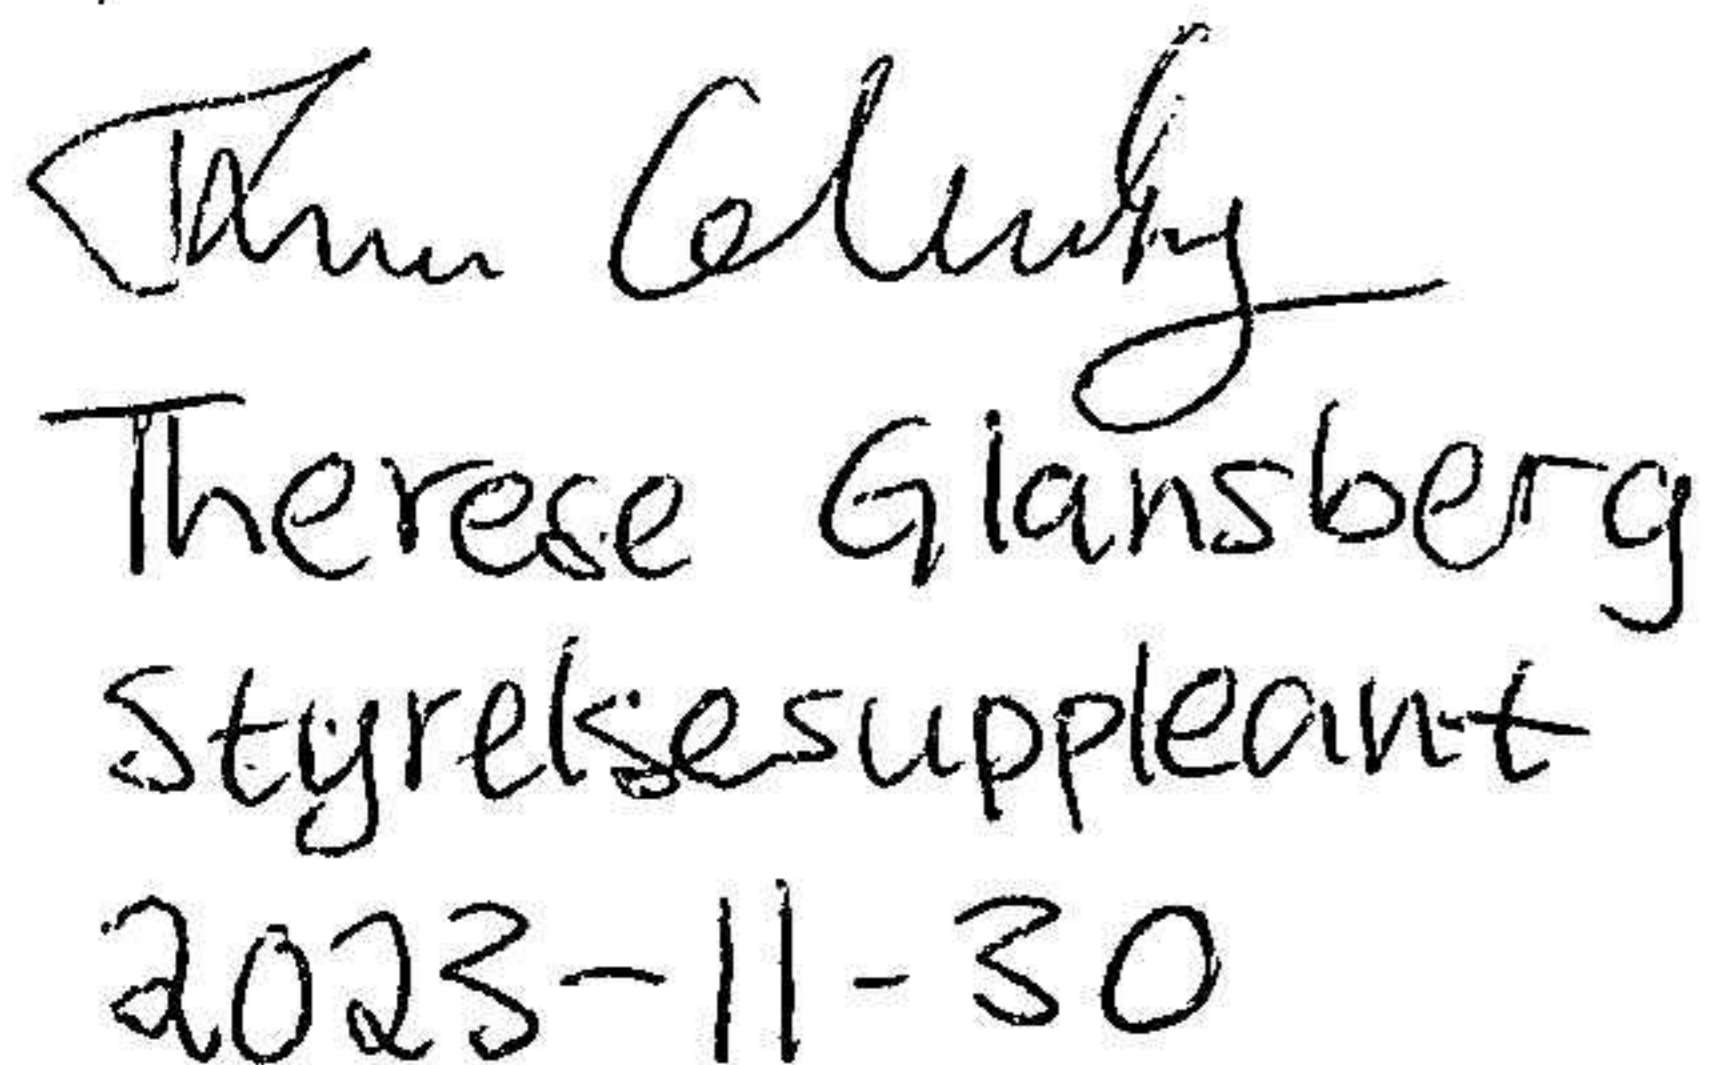 Therese Glansberg
Styrelsesuppleant
2023-11-30